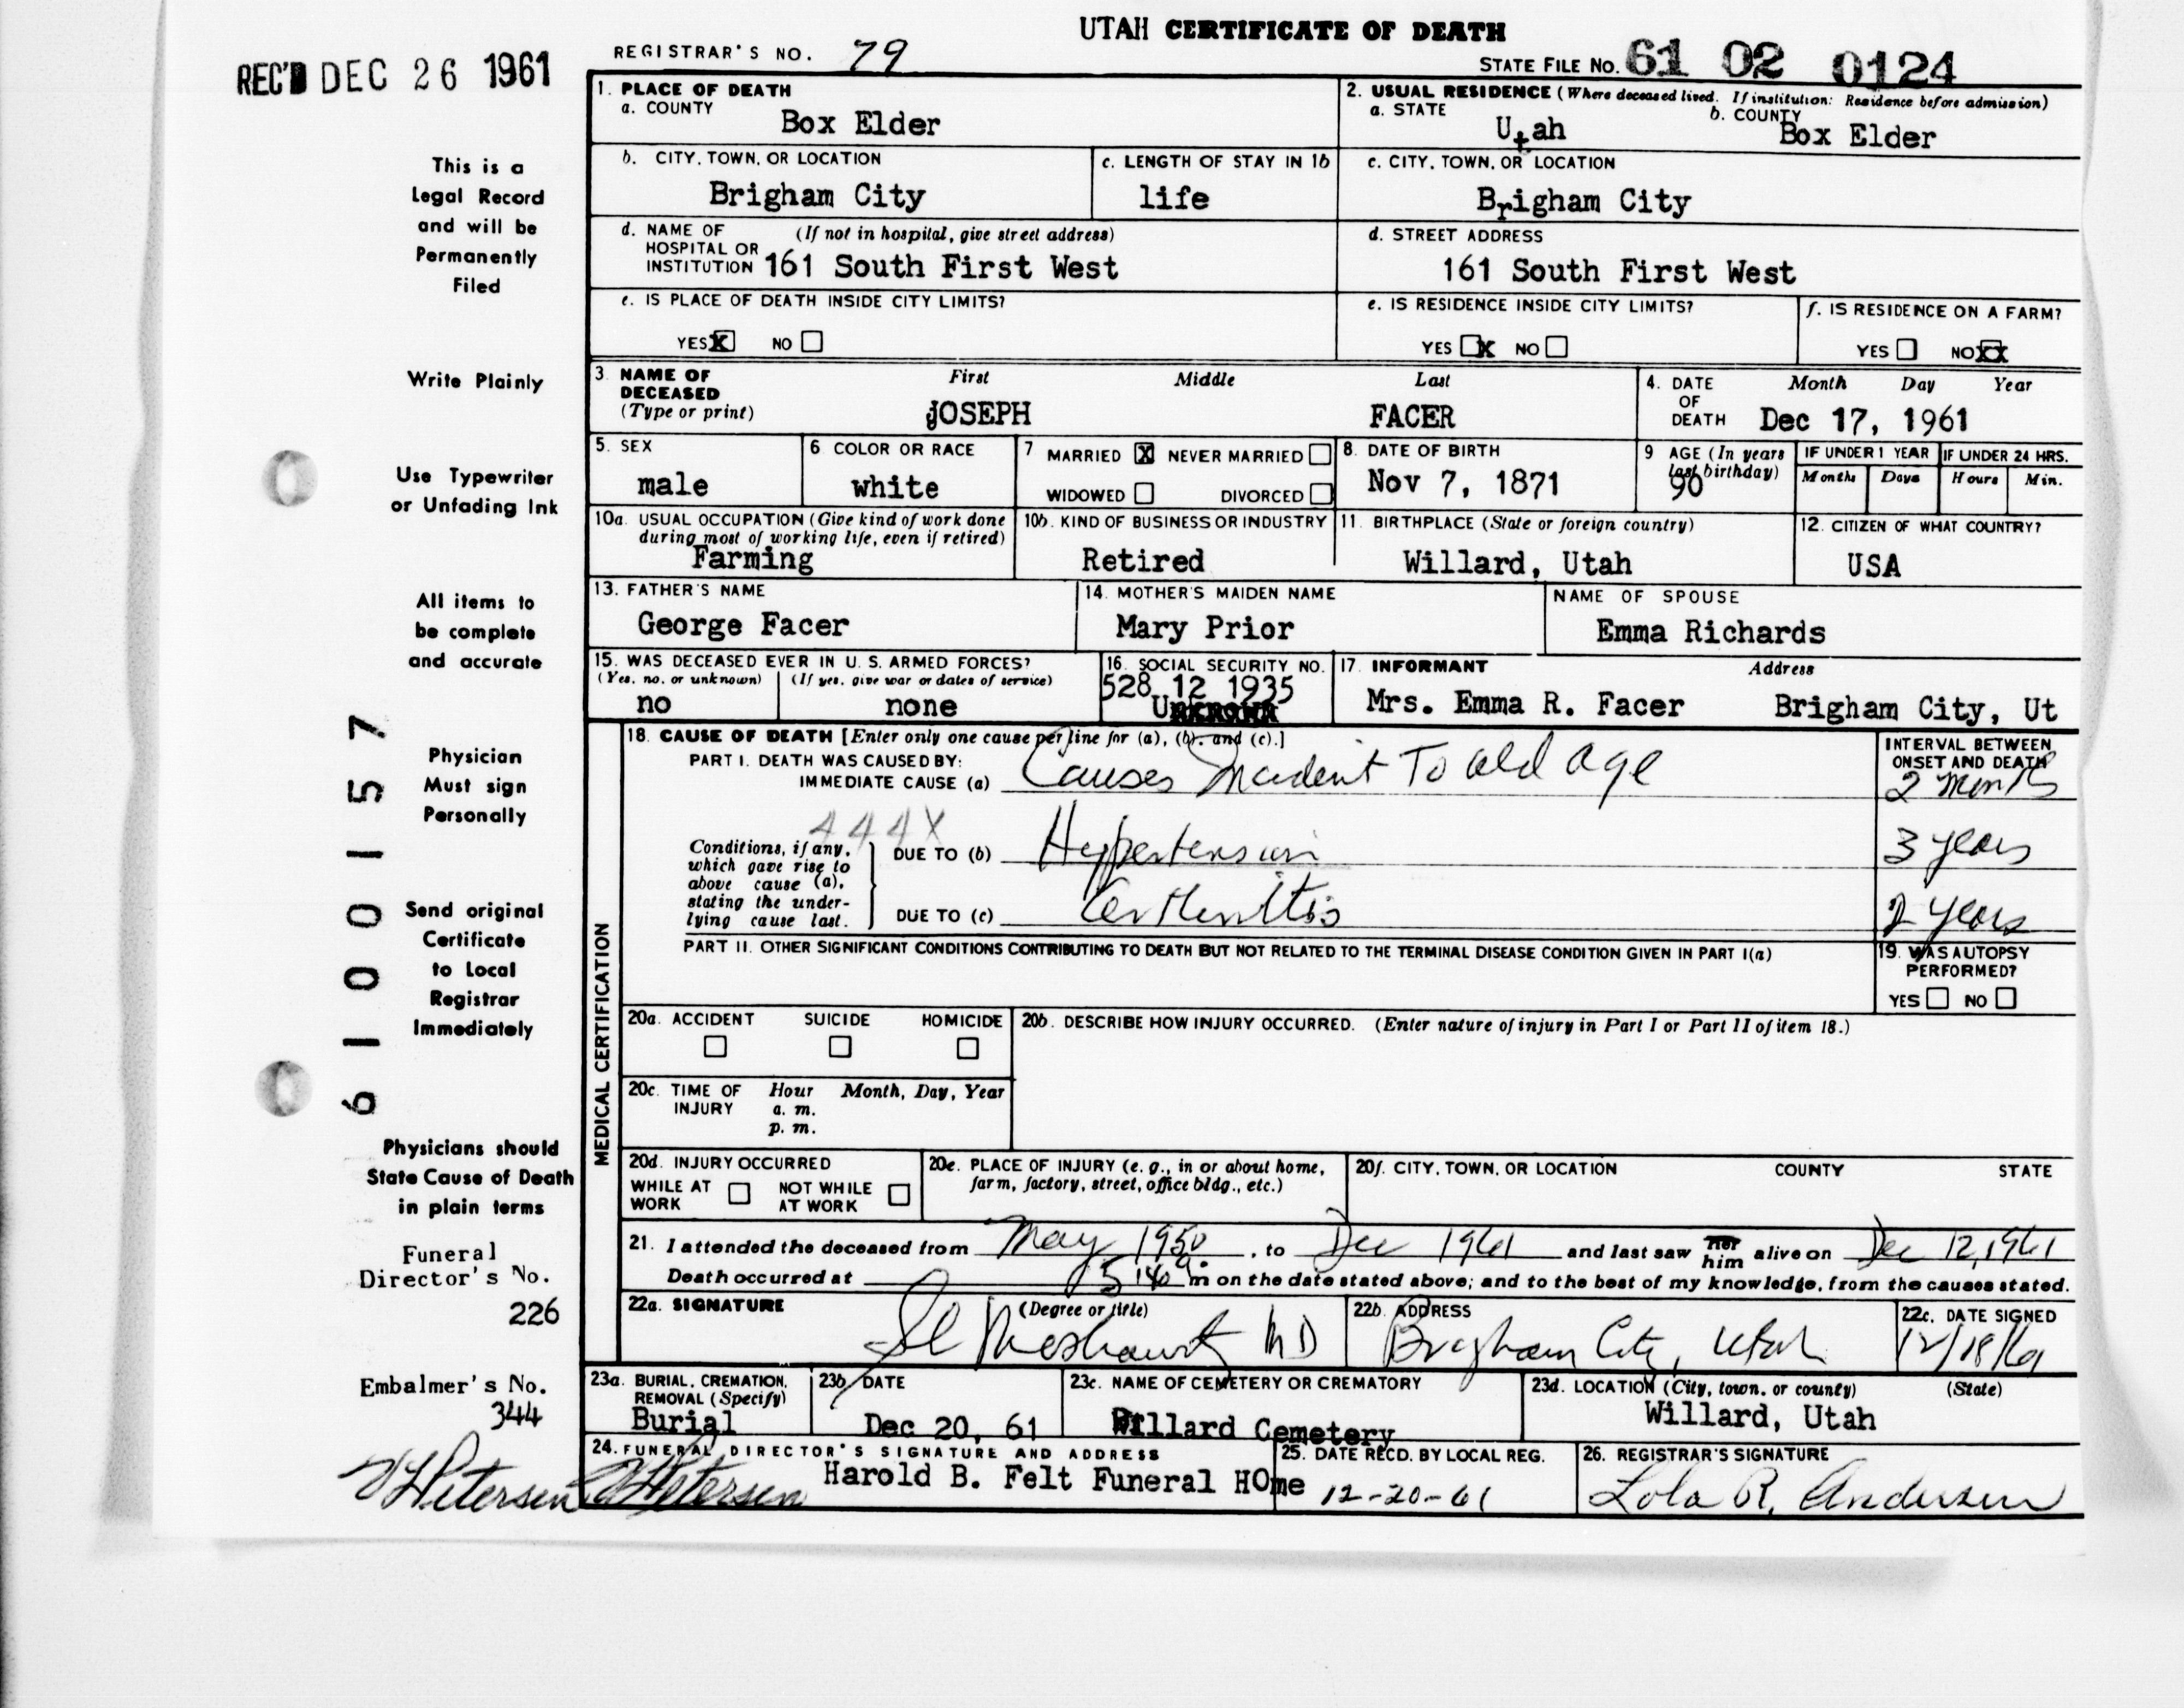 UTAH CERTIFICATE OF DEATH
REC'D DEC 26 1961
REGISTRAR'S NO. 79
STATE FILE NO. 61 02 0124
1. PLACE OF DEATH
a. COUNTY
Box Elder
2. USUAL RESIDENCE (Where deceased lived. If institution: Residence before admission)
a. STATE
Utah
b. COUNTY
Box Elder
b. CITY, TOWN, OR LOCATION
Brigham City
c. LENGTH OF STAY IN 1b
life
c. CITY, TOWN, OR LOCATION
Brigham City
d. NAME OF HOSPITAL OR INSTITUTION (If not in hospital, give street address)
161 South First West
d. STREET ADDRESS
161 South First West
e. IS PLACE OF DEATH INSIDE CITY LIMITS?
YES X NO
e. IS RESIDENCE INSIDE CITY LIMITS?
YES X NO
f. IS RESIDENCE ON A FARM?
YES NO XX
3. NAME OF DECEASED (Type or print)
First Middle Last
JOSEPH FACER
4. DATE OF DEATH Month Day Year
Dec 17, 1961
5. SEX
male
6 COLOR OR RACE
white
7 MARRIED X NEVER MARRIED
WIDOWED DIVORCED
8. DATE OF BIRTH
Nov 7, 1871
9 AGE (In years last birthday)
90
IF UNDER 1 YEAR
Months Days
IF UNDER 24 HRS.
Hours Min.
10a. USUAL OCCUPATION (Give kind of work done during most of working life, even if retired)
Farming
10b. KIND OF BUSINESS OR INDUSTRY
Retired
11. BIRTHPLACE (State or foreign country)
Willard, Utah
12. CITIZEN OF WHAT COUNTRY?
USA
13. FATHER'S NAME
George Facer
14. MOTHER'S MAIDEN NAME
Mary Prior
NAME OF SPOUSE
Emma Richards
15. WAS DECEASED EVER IN U. S. ARMED FORCES?
(Yes, no, or unknown) (If yes, give war or dates of service)
no none
16. SOCIAL SECURITY NO.
528 12 1935
Unknown
17. INFORMANT Address
Mrs. Emma R. Facer Brigham City, Ut
18. CAUSE OF DEATH [Enter only one cause per line for (a), (b), and (c).]
PART I. DEATH WAS CAUSED BY:
IMMEDIATE CAUSE (a) Causes Incident To old age
INTERVAL BETWEEN ONSET AND DEATH
2 months
444X
Conditions, if any, which gave rise to above cause (a), stating the underlying cause last.
DUE TO (b) Hypertension
3 years
DUE TO (c)
2 years
PART II. OTHER SIGNIFICANT CONDITIONS CONTRIBUTING TO DEATH BUT NOT RELATED TO THE TERMINAL DISEASE CONDITION GIVEN IN PART I(a)
19. WAS AUTOPSY PERFORMED?
YES NO
MEDICAL CERTIFICATION
20a. ACCIDENT SUICIDE HOMICIDE
20b. DESCRIBE HOW INJURY OCCURRED. (Enter nature of injury in Part I or Part II of item 18.)
20c. TIME OF INJURY Hour Month, Day, Year
a. m.
p. m.
20d. INJURY OCCURRED
WHILE AT WORK NOT WHILE AT WORK
20e. PLACE OF INJURY (e. g., in or about home, farm, factory, street, office bldg., etc.)
20f. CITY, TOWN, OR LOCATION COUNTY STATE
21. I attended the deceased from May 1950, to Dec 1961 and last saw her him alive on Dec 12, 1961
Death occurred at 5:40 a m on the date stated above; and to the best of my knowledge, from the causes stated.
22a. SIGNATURE (Degree or title)
MD
22b. ADDRESS
Brigham City, Utah
22c. DATE SIGNED
12/18/61
23a. BURIAL, CREMATION, REMOVAL (Specify)
Burial
23b. DATE
Dec 20, 61
23c. NAME OF CEMETERY OR CREMATORY
Willard Cemetery
23d. LOCATION (City, town, or county) (State)
Willard, Utah
24. FUNERAL DIRECTOR'S SIGNATURE AND ADDRESS
Petersen
Harold B. Felt Funeral HOme
25. DATE RECD. BY LOCAL REG.
12-20-61
26. REGISTRAR'S SIGNATURE
Lola R. Andersen
This is a
Legal Record
and will be
Permanently
Filed
Write Plainly
Use Typewriter
or Unfading Ink
All items to
be complete
and accurate
Physician
Must sign
Personally
Send original
Certificate
to Local
Registrar
Immediately
6100157
Physicians should
State Cause of Death
in plain terms
Funeral
Director's No.
226
Embalmer's No.
344
Petersen